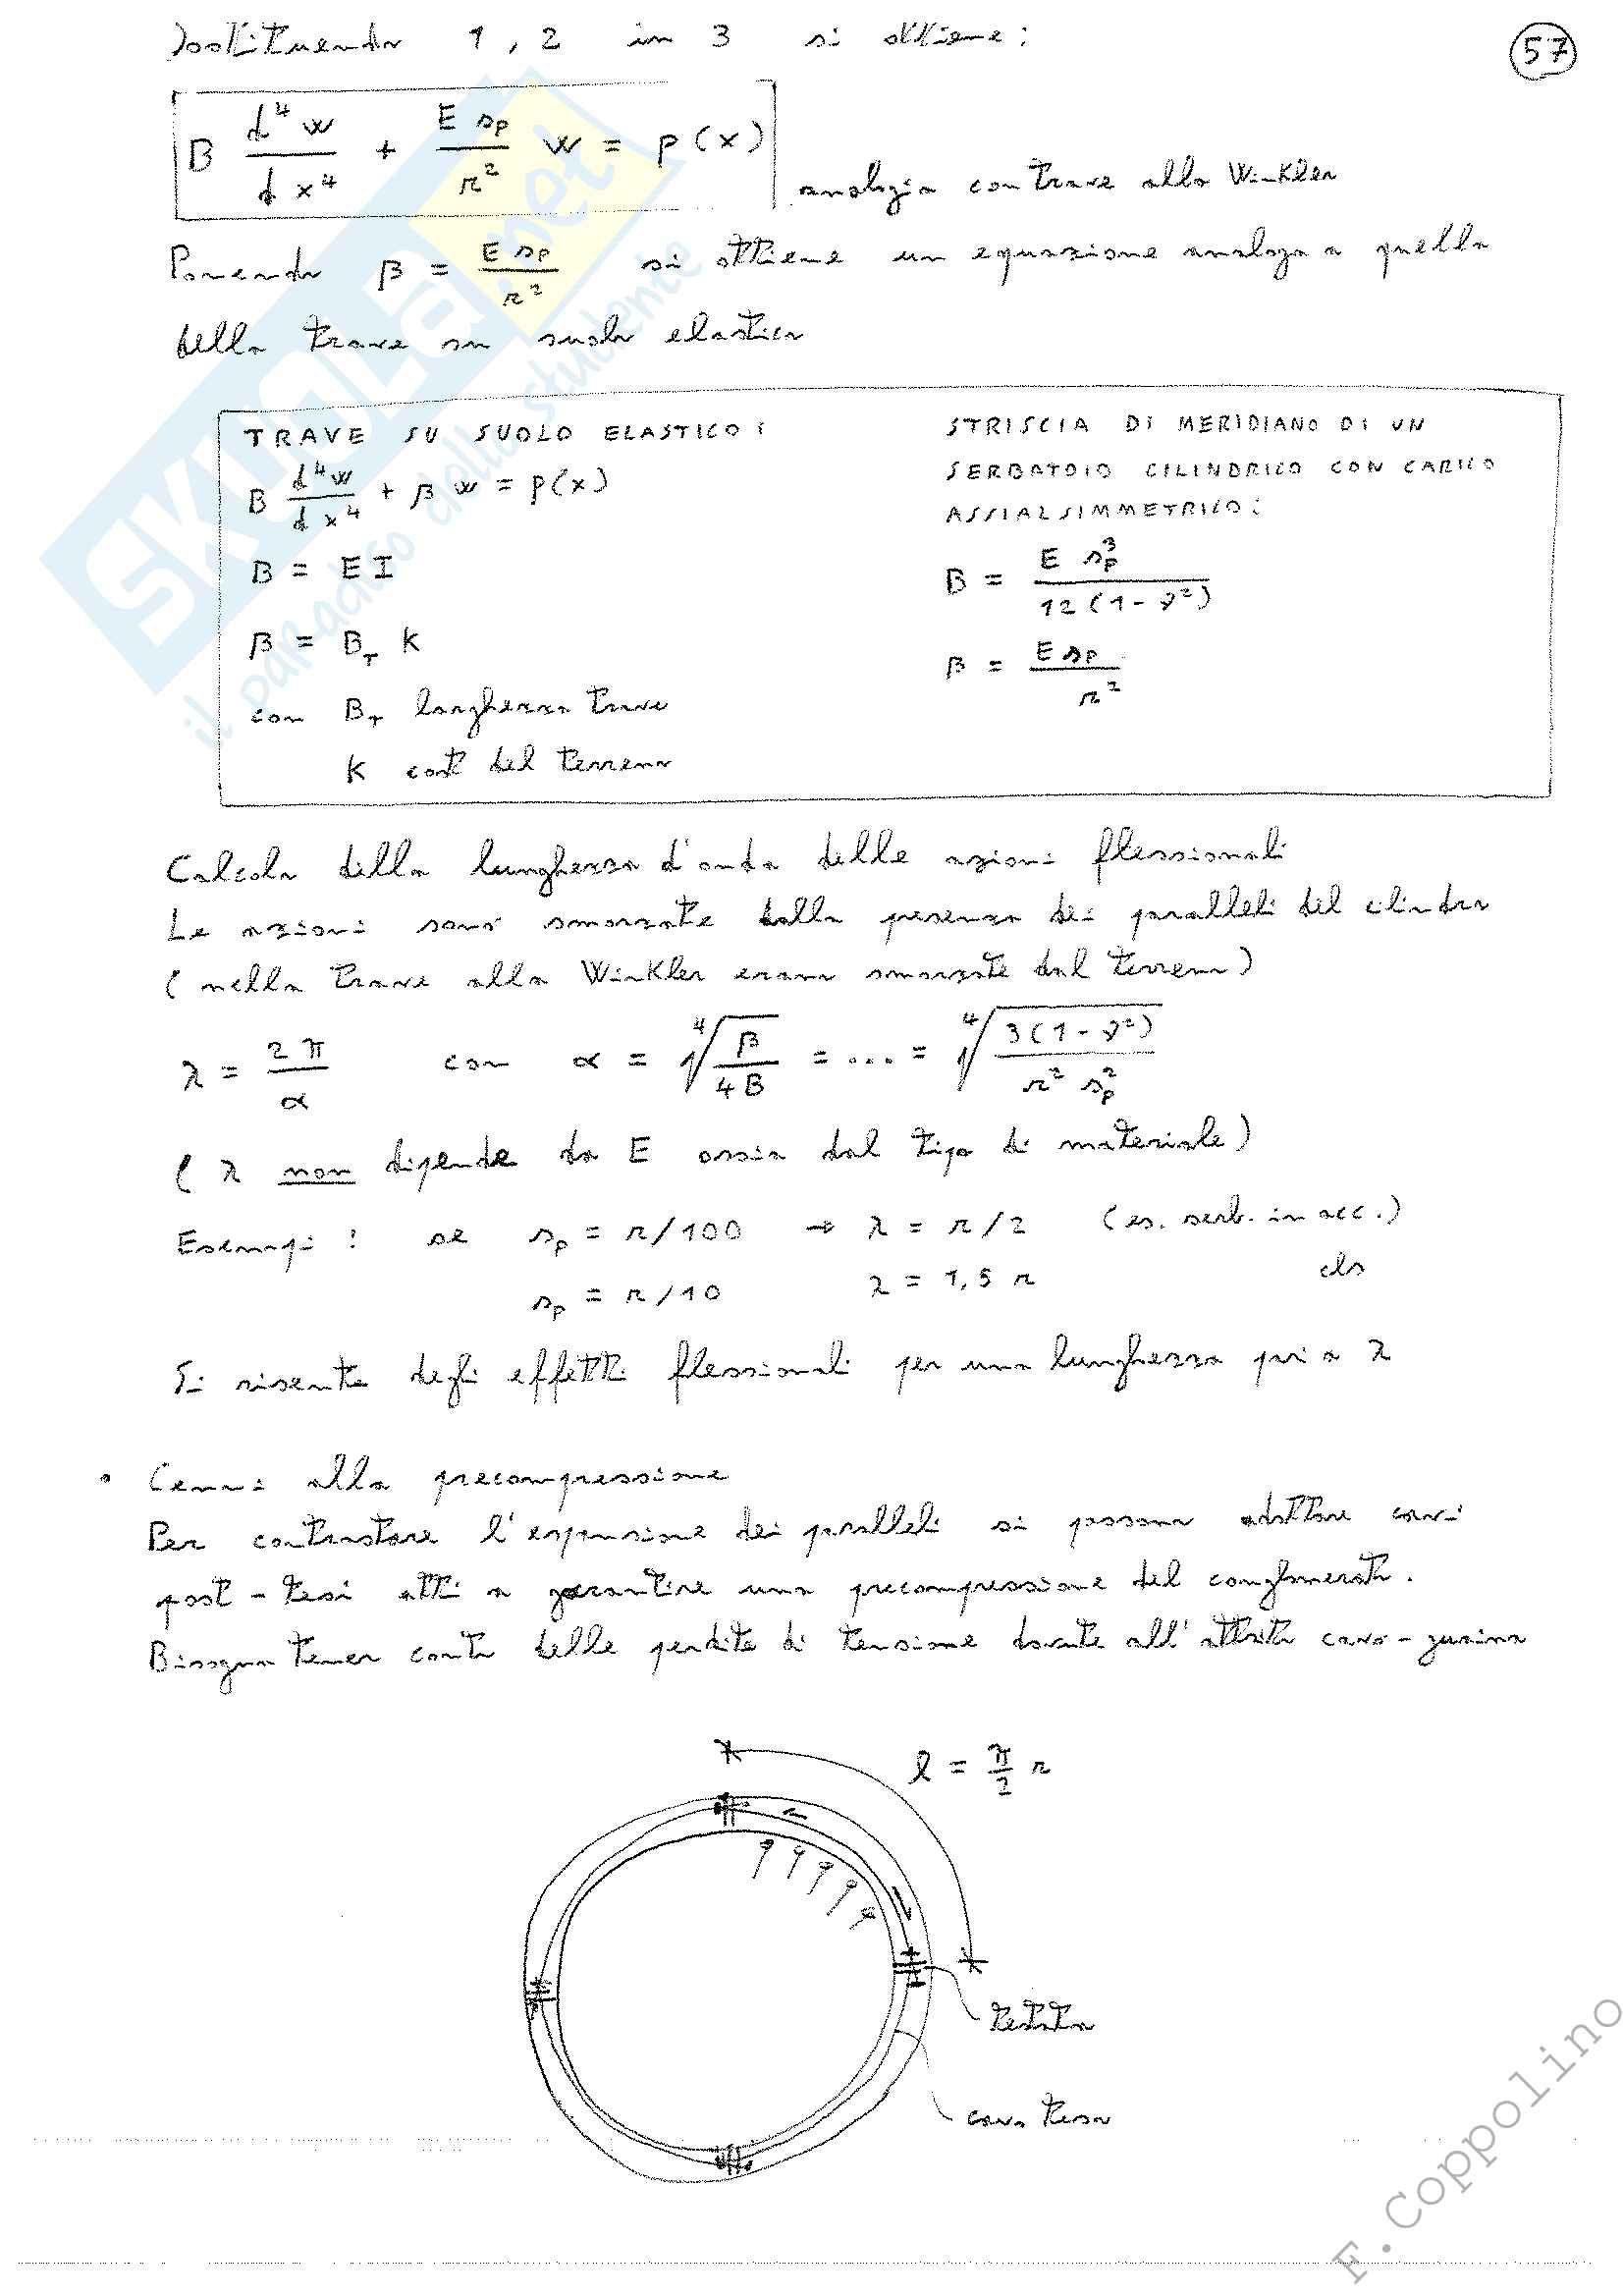 Sostituendo 1, 2 in 3 si ottiene:
57
B d⁴w/dx⁴ + E sp/r² w = p(x)
analogia con trave alla Winkler
Ponendo β = E sp/r² si ottiene un equazione analoga a quella
della trave su suolo elastico
TRAVE SU SUOLO ELASTICO:
B d⁴w/dx⁴ + β w = p(x)
B = EI
β = B_T K
con B_T larghezza trave
K cost del terreno
STRISCIA DI MERIDIANO DI UN
SERBATOIO CILINDRICO CON CARICO
ASSIALSIMMETRICO:
B = E sp³ / 12(1-ν²)
β = E sp / r²
Calcolo della lunghezza d'onda delle azioni flessionali
Le azioni sono smorzate dalla presenza dei paralleli del cilindro
(nella trave alla Winkler erano smorzate dal terreno)
λ = 2π/α con α = ⁴√(β/4B) = ... = ⁴√(3(1-ν²)/r² sp²)
(λ non dipende da E ossia dal tipo di materiale)
Esempi: se sp = r/100 → λ = r/2 (es. serb. in acc.)
sp = r/10 λ = 1,5 r cls
Si risente degli effetti flessionali per una lunghezza pari a λ
• Cenni alla precompressione
Per contrastare l'espansione dei paralleli si possono adottare cavi
post-tesi atti a garantire una precompressione del conglomerato.
Bisogna tener conto delle perdite di tensione dovute all'attrito cavo-guaina
l = π/2 r
testata
cavo teso
SKUOLA.net
il paradiso dello studente
F. Coppolino